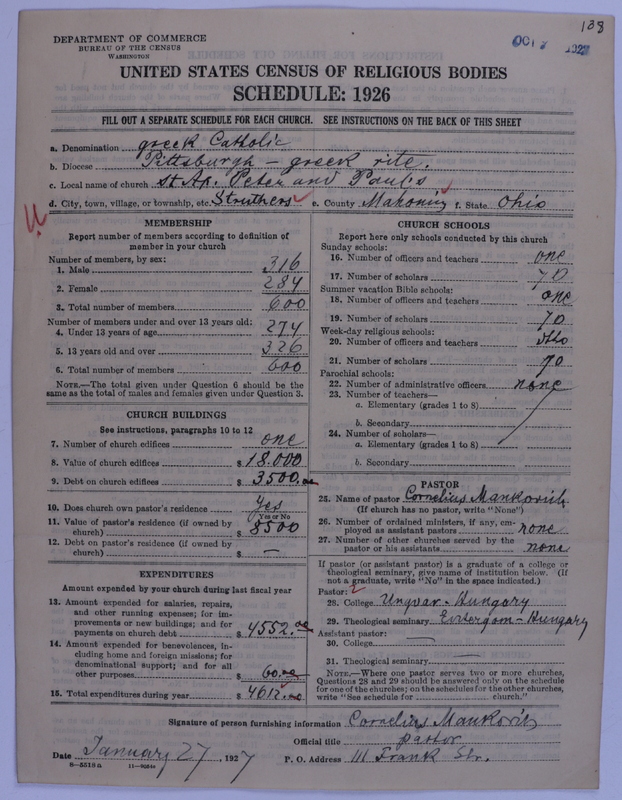 138
DEPARTMENT OF COMMERCE
BUREAU OF THE CENSUS
WASHINGTON
OCT 192
UNITED STATES CENSUS OF RELIGIOUS BODIES
SCHEDULE: 1926
FILL OUT A SEPARATE SCHEDULE FOR EACH CHURCH. SEE INSTRUCTIONS ON THE BACK OF THIS SHEET
a. Denomination greek Catholic
b. Diocese Pittsburgh – greek rite.
c. Local name of church St Ap. Peter and Paul's
d. City, town, village, or township, etc. Struthers e. County Mahoning f. State Ohio
MEMBERSHIP
Report number of members according to definition of
member in your church
Number of members, by sex:
1. Male 316
2. Female 284
3. Total number of members 600
Number of members under and over 13 years old:
4. Under 13 years of age 274
5. 13 years old and over 326
6. Total number of members 600
NOTE.—The total given under Question 6 should be the
same as the total of males and females given under Question 3.
CHURCH BUILDINGS
See instructions, paragraphs 10 to 12
7. Number of church edifices one
8. Value of church edifices $ 18.000
9. Debt on church edifices $ 3500.00
10. Does church own pastor's residence? Yes
Yes or No
11. Value of pastor's residence (if owned by
church) $ 8500
12. Debt on pastor's residence (if owned by
church) $ —
EXPENDITURES
Amount expended by your church during last fiscal year
13. Amount expended for salaries, repairs,
and other running expenses; for im-
provements or new buildings; and for
payments on church debt $ 4552.00
14. Amount expended for benevolences, in-
cluding home and foreign missions; for
denominational support; and for all
other purposes $ 60.00
15. Total expenditures during year $ 4612.00
CHURCH SCHOOLS
Report here only schools conducted by this church
Sunday schools:
16. Number of officers and teachers one
17. Number of scholars 70
Summer vacation Bible schools:
18. Number of officers and teachers one
19. Number of scholars 70
Week-day religious schools:
20. Number of officers and teachers
21. Number of scholars 70
Parochial schools:
22. Number of administrative officers none
23. Number of teachers—
a. Elementary (grades 1 to 8)
b. Secondary
24. Number of scholars—
a. Elementary (grades 1 to 8)
b. Secondary
PASTOR
25. Name of pastor Cornelius Mankovich
(If church has no pastor, write "None")
26. Number of ordained ministers, if any, em-
ployed as assistant pastors none
27. Number of other churches served by the
pastor or his assistants none
If pastor (or assistant pastor) is a graduate of a college or
theological seminary, give name of institution below. (If
not a graduate, write "No" in the space indicated.)
Pastor: 2
28. College Ungvar - Hungary
29. Theological seminary Esztergom - Hungary
Assistant pastor:
30. College —
31. Theological seminary —
NOTE.—Where one pastor serves two or more churches,
Questions 28 and 29 should be answered only on the schedule
for one of the churches; on the schedules for the other churches,
write "See schedule for church."
Signature of person furnishing information Cornelius Mankovich
Official title pastor
Date January 27, 1927 P. O. Address 111 Frank Str.
8—5518a